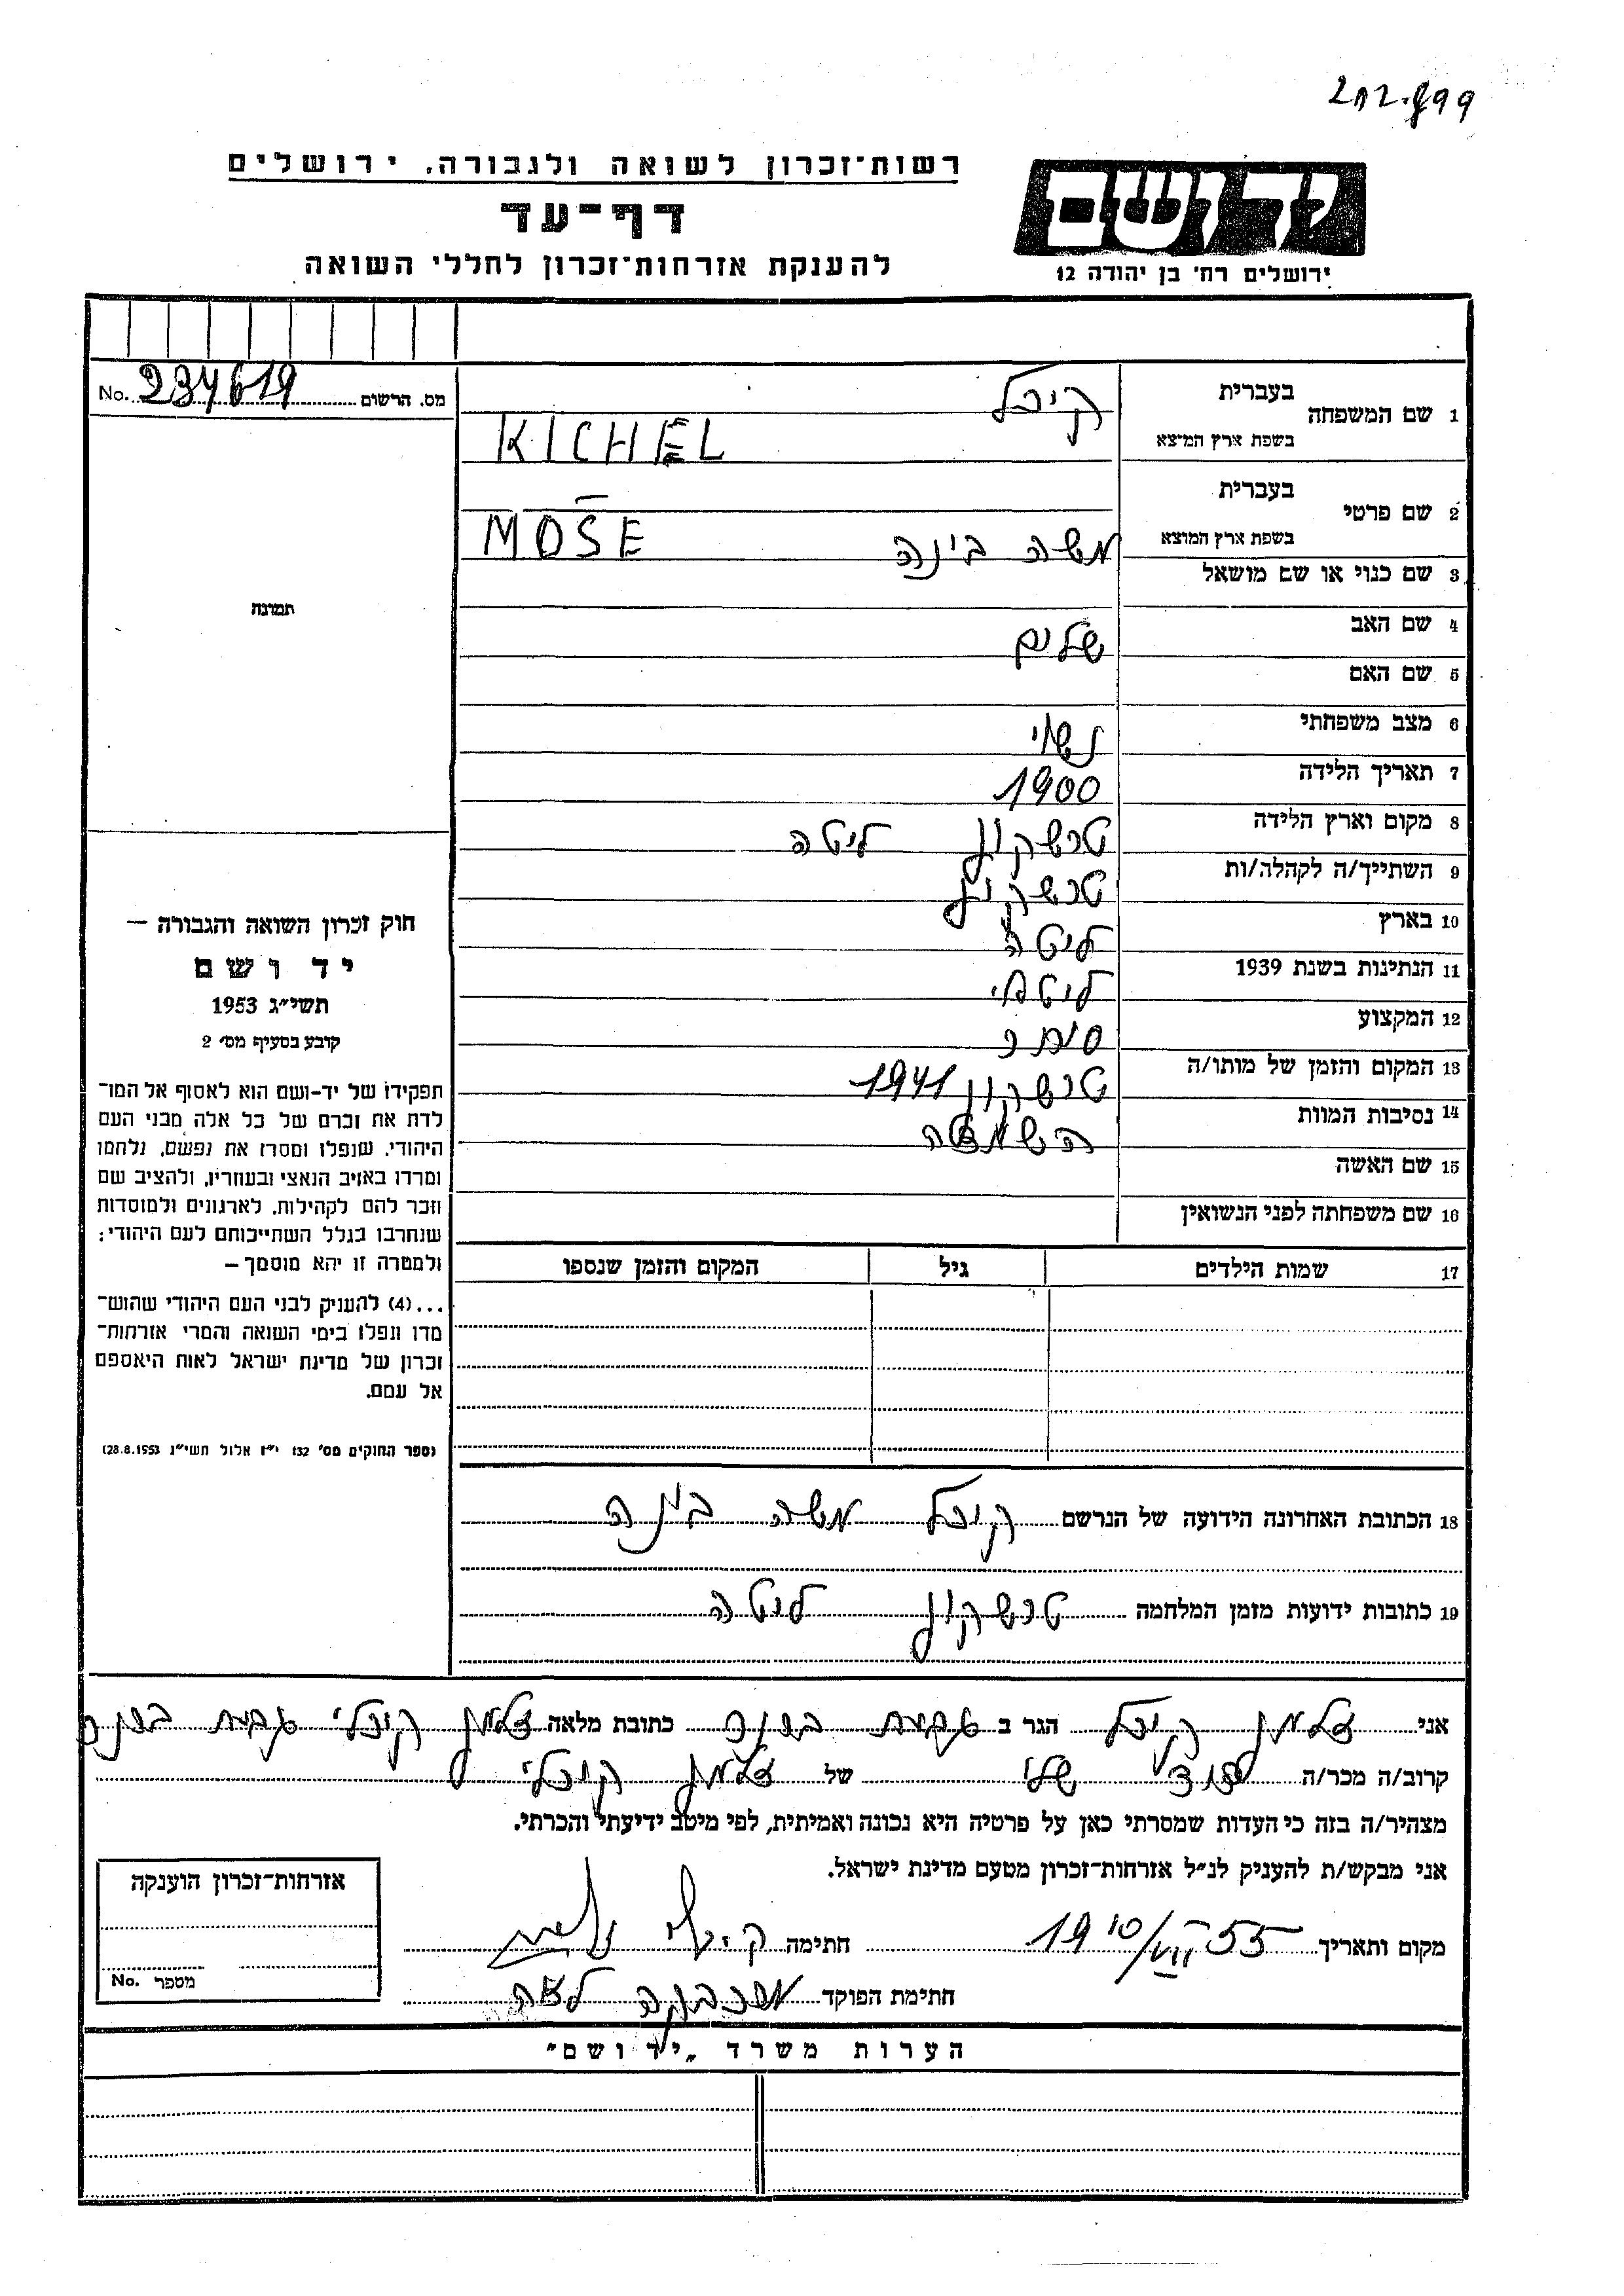 202.899
רשות־זכרון לשואה ולגבורה, ירושלים
דף־עד
להענקת אזרחות־זכרון לחללי השואה
יד ושם
ירושלים רח' בן יהודה 12
No. 234619 מס. הרשום
תמונה
1 שם המשפחה בעברית קיכל
בשפת ארץ המוצא KICHEL
2 שם פרטי בעברית
בשפת ארץ המוצא משה בינה MOŠE
3 שם כנוי או שם מושאל
4 שם האב שלום
5 שם האם
6 מצב משפחתי נשוי
7 תאריך הלידה 1900
8 מקום וארץ הלידה טבשקון ליטה
9 השתייך/ה לקהלה/ות טבשקון
10 בארץ ליטה
11 הנתינות בשנת 1939 ליטאי
12 המקצוע סוחר
13 המקום והזמן של מותו/ה טבשקון 1941
14 נסיבות המוות השמדה
15 שם האשה
16 שם משפחתה לפני הנשואין
17 שמות הילדים גיל המקום והזמן שנספו
חוק זכרון השואה והגבורה —
יד ושם
תשי"ג 1953
קובע בסעיף מס' 2
תפקידו של יד-ושם הוא לאסוף אל המו־
לדת את זכרם של כל אלה מבני העם
היהודי, שנפלו ומסרו את נפשם, נלחמו
ומרדו באויב הנאצי ובעוזריו, ולהציב שם
וזכר להם לקהילות, לארגונים ולמוסדות
שנחרבו בגלל השתייכותם לעם היהודי;
ולמטרה זו יהא מוסמך —
...(4) להעניק לבני העם היהודי שהוש־
מדו ונפלו בימי השואה והמרי אזרחות־
זכרון של מדינת ישראל לאות היאספם
אל עמם.
(ספר החוקים מס' 132 י"ז אלול תשי"ג 28.8.1953)
18 הכתובת האחרונה הידועה של הנרשם קיכל משה בינה
19 כתובות ידועות מזמן המלחמה טבשקון ליטה
אני זלמן קיכל הגר ב גבעת כתובת מלאה זלמן קיכלי גבעת
קרוב/ה מכר/ה דוד שלי של זלמן קיכלי
מצהיר/ה בזה כי העדות שמסרתי כאן על פרטיה היא נכונה ואמיתית, לפי מיטב ידיעתי והכרתי.
אני מבקש/ת להעניק לנ"ל אזרחות־זכרון מטעם מדינת ישראל.
מקום ותאריך 19 10/VII 55 חתימה קיכלי זלמן
חתימת הפוקד לאה
אזרחות־זכרון הוענקה
מספר No.
הערות משרד „יד ושם"